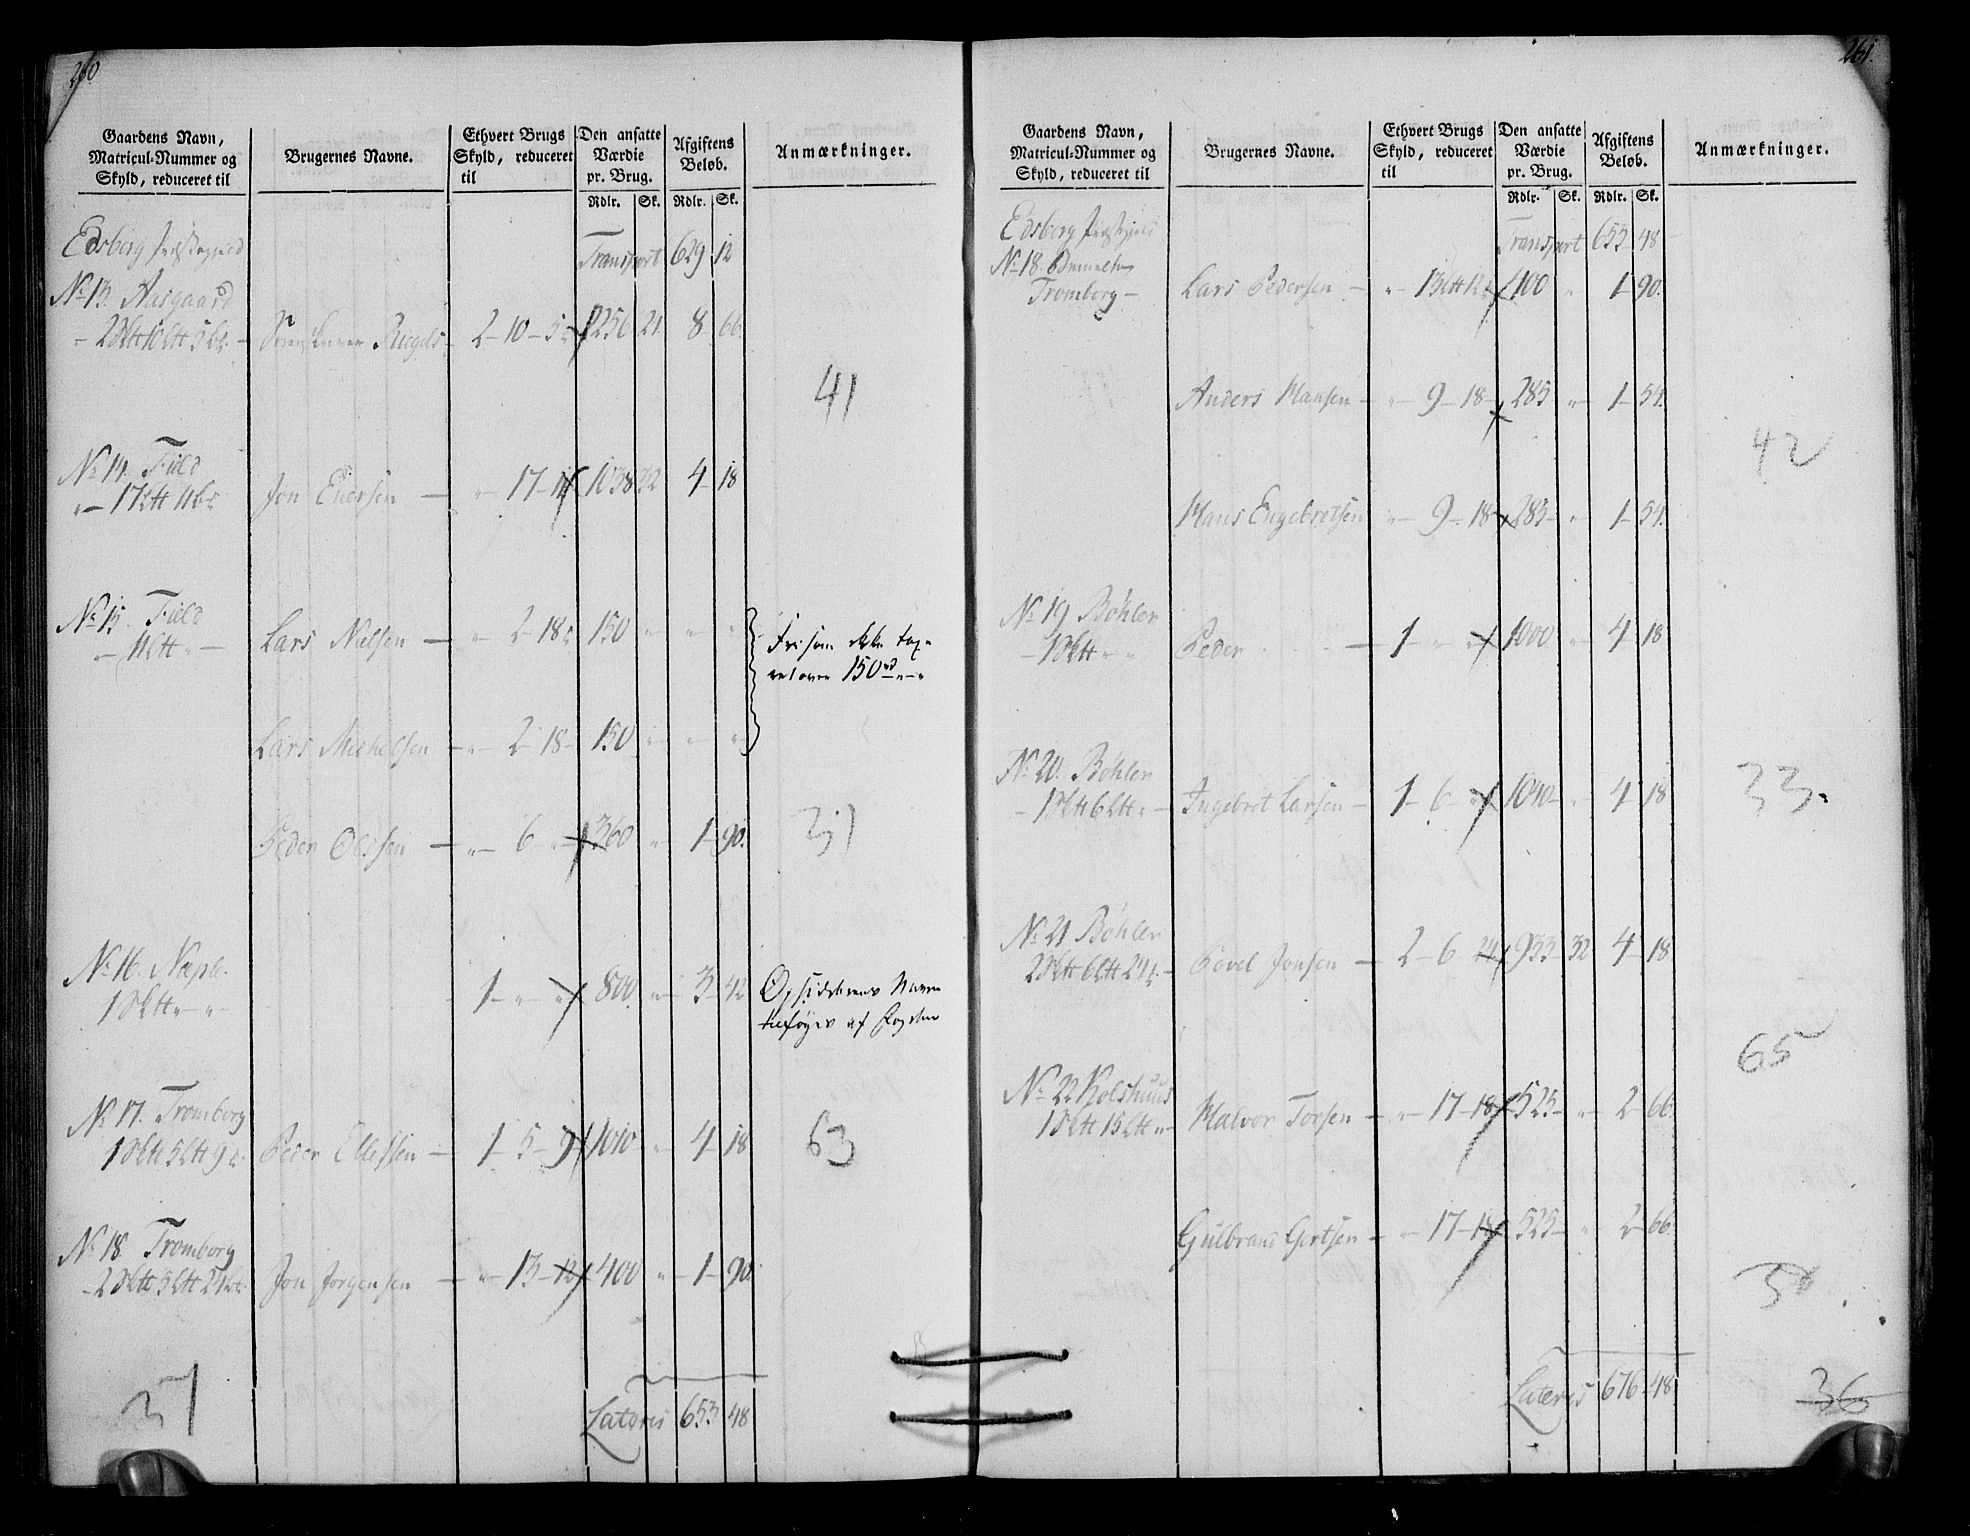 260
Gaardens Navn, Matricul-Nummer og Skyld, reduceret til
Brugernes Navne.
Ethvert Brugs Skyld, reduceret til
Den ansatte Værdie pr. Brug.
Afgiftens Beløb.
Anmærkninger.
Rdlr. Sk. Rdlr. Sk.
Edsberg
Transport 629 12
No 13. Aasgaard
2 10 5 Riegels 2-10-5 21 8 66.
41
No 14. Field
17 11 Jon Enersen — " 17- 1038 32 4 18
No 15. Field
Lars Nielsen — " 2 18 150 " " "
Fri som ikke taxe
ret over 150 rd " "
Lars Michelsen — " 2 18 150 " " "
Peder Olssen — " 6 " 360 " 1 90.
31
No 16. Næple.
1 " " 1 " " 800 " 3 42
Opsidderens Navn
tilføyes af Fogden
No 17. Tromborg
1 5 9 Peder Ellefsen — 1 5 9 1010 " 4 18
63
No 18. Tromborg
2 5 Jon Jorgensen — " 13 12 400 " 1 90.
37
Lateris 653 48
261.
Gaardens Navn, Matricul-Nummer og Skyld, reduceret til
Brugernes Navne.
Ethvert Brugs Skyld, reduceret til
Den ansatte Værdie pr. Brug.
Afgiftens Beløb.
Anmærkninger.
Rdlr. Sk. Rdlr. Sk.
Edsberg
Transport 653 48
No 18.
Tromborg — Lars Pedersen — " 13 12 400 " 1 90.
Anders Hansen — " 9 18 285 " 1 54.
42
Hans Engebretsen " 9 18 285 " 1 54.
No 19 Bøhler
1 " " Peder — 1 " " 1000 " 4 18
No 20. Bøhler
1 6 " Ingebret Larsen — 1 6 " 1040 " 4 18
33.
No 21 Bøhler
2 6 21 Povel Jonsen — 2 6 933 32 4 18
65
No 22 Kolshuus
1 15 " Halvor Torsen — " 17 18 525 " 2 66.
Gulbrand Gertsen — " 17 18 525 " 2 66.
Lateris 676 48
36